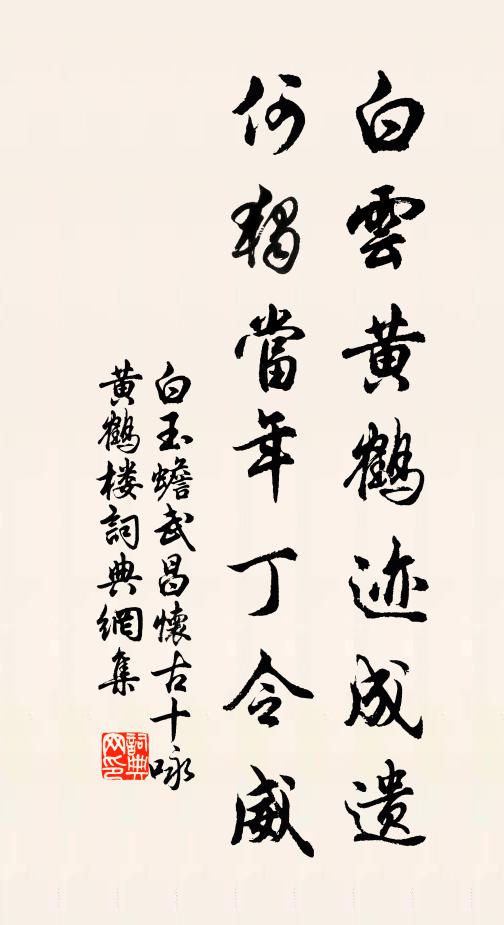 白雲黄鶴迹成遗
何獨當年丁令威
白玉蟾武昌懷古十咏
黄鶴楼詞典網集
詞典网印